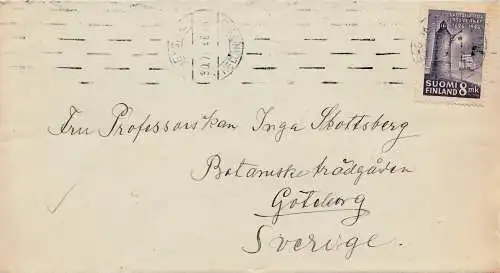 SUOMI 8 mk
FINLAND
Fru Professorskan Inga Skottsberg
Botaniska trädgården
Göteborg
Sverige.